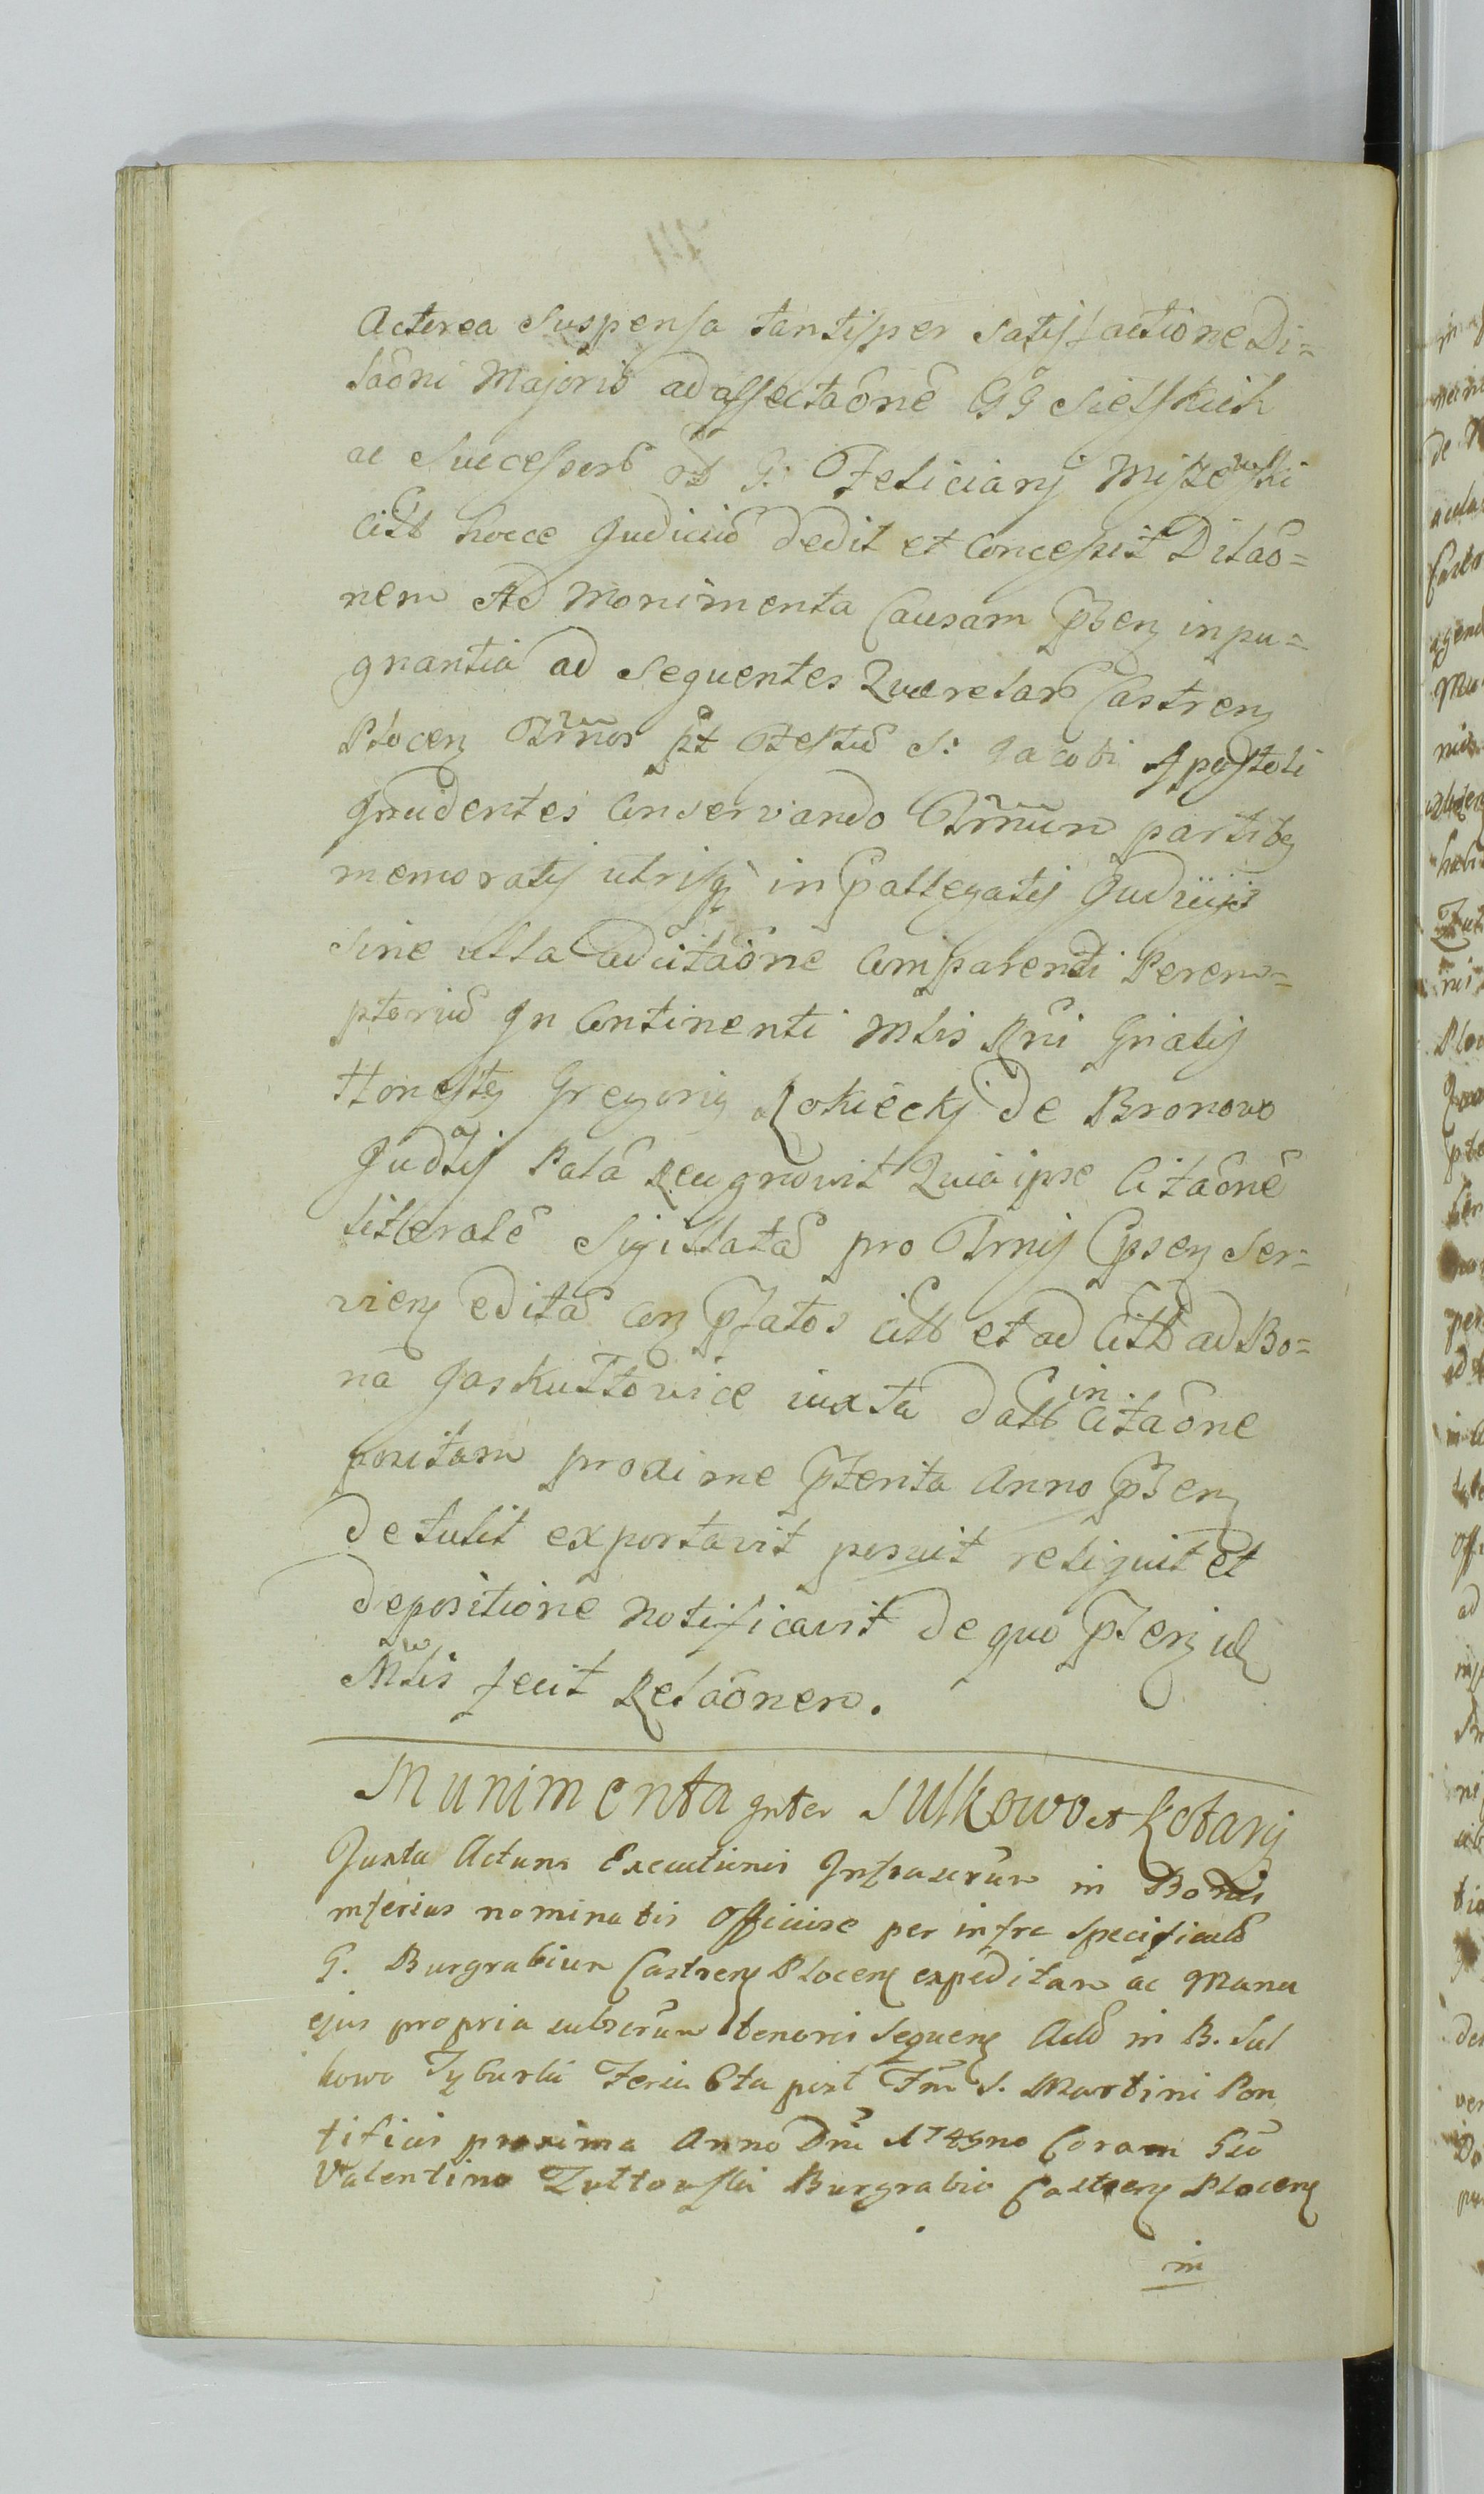 Acterea suspensa tantisper satisfactione Di=
laõni Majoris ad affectaõnẽ GG Sielskich
ac Successorũ G: Feliciani Miszewski
Citt hocce Judiciũ dedit et Concessit Dilaõ=
nem Ad Monimenta Causam pñsenz inpu=
gnantia ad sequentes Querelarũ Castrenz
Plocenz Trmños pt Festũ S: Jacobi Apostoli
Jncidentes Conservando Trmñum partibz
memoratis utrisqz in pallegatis Judiciis
sine ulla adcitaõne Comparendi Perem=
ptoriũ Jn Continenti Mtis Rni Gnalis
Honestz Gregorig Rokiecki de Bronowo
Judlis Palã Recognovit Quia ipse Citaõnẽ
litteralẽ Sigillatã pro Trnis pñsenz Ser=
vienz editã Conz pfatos Citt et ad Citt ad Bo=
na Jaskuttowice iuxta datt in Citaõne
positam proxime pterita Anno pñsenz
detulit exportavit posuit reliquit et
depositione notificavit de quo pñsenz
Mtis fecit Relaõnem.
Munimenta Jnter Sulkowo et Kobany
Juxta Actum Executionis Jnfrascrũm in Bonis
inferius nominatis Officiose per infra specificatũ
G. Burgrabium Castrenz Plocenz expeditam ac Manu
ejus propria subscrũm tenoris sequenz Actũ in B. Sul
kowo Tyburki Feria 6ta post Fm̃ S. Martini Pon
tificis proxima Anno Dni 1745no Coram Gso
Valentino Zuttowski Burgrabio Castrenz Plocenz
in